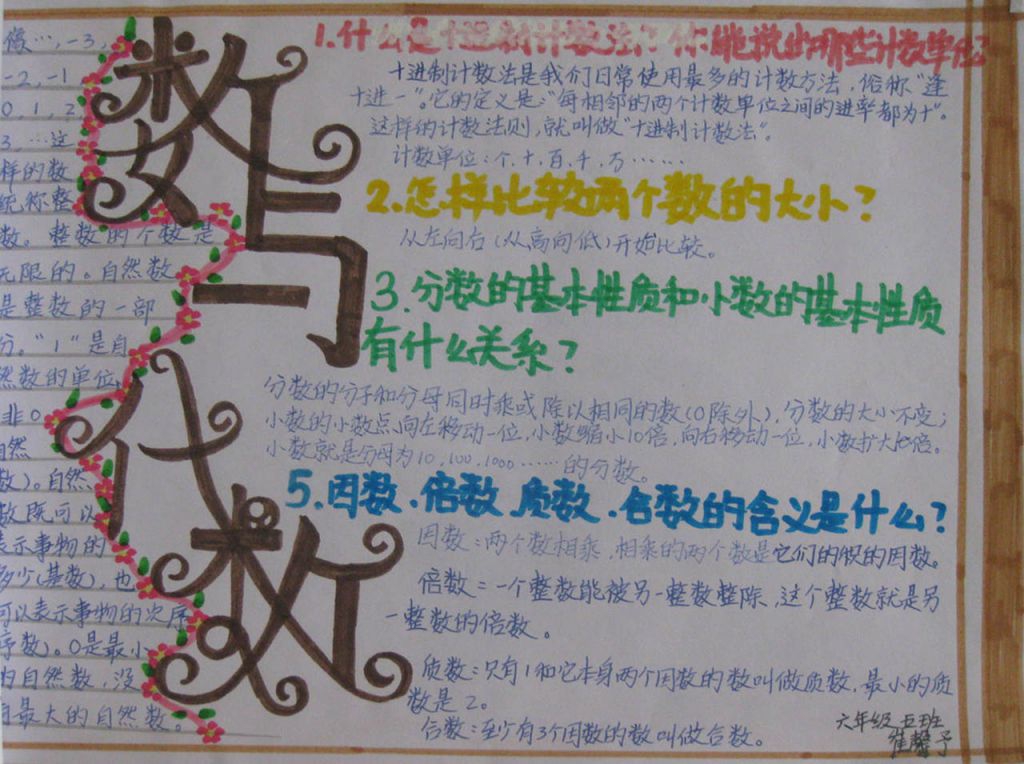 像…,-3,
-2,-1
0,1,2
3…这
样的数
统称整
数。整数的个数是
无限的。自然数
是整数的一部
分。"1"是自
然数的单位,
非0
自然
数)。自然
数既可以
表示事物的
多少(基数),也
可以表示事物的次序
序数)。0是最小
的自然数,没
有最大的自然数。
数与
代数
1.什么是十进制计数法?你能说出哪些计数单位?
十进制计数法是我们日常使用最多的计数方法,俗称"逢
十进一"。它的定义是:"每相邻的两个计数单位之间的进率都为十"。
这样的计数法则,就叫做"十进制计数法"。
计数单位:个.十.百.千.万……
2.怎样比较两个数的大小?
从左向右(从高向低)开始比较。
3.分数的基本性质和小数的基本性质
有什么关系?
分数的分子和分母同时乘或除以相同的数(0除外),分数的大小不变;
小数的小数点向左移动一位,小数缩小10倍,向右移动一位,小数扩大10倍。
小数就是分母为10,100,1000……的分数。
5.因数.倍数.质数.合数的含义是什么?
因数:两个数相乘,相乘的两个数是它们的积的因数。
倍数:一个整数能被另一整数整除,这个整数就是另
一整数的倍数。
质数:只有1和它本身两个因数的数叫做质数,最小的质
数是2。
合数:至少有3个因数的数叫做合数。
六年级五班
崔馨予